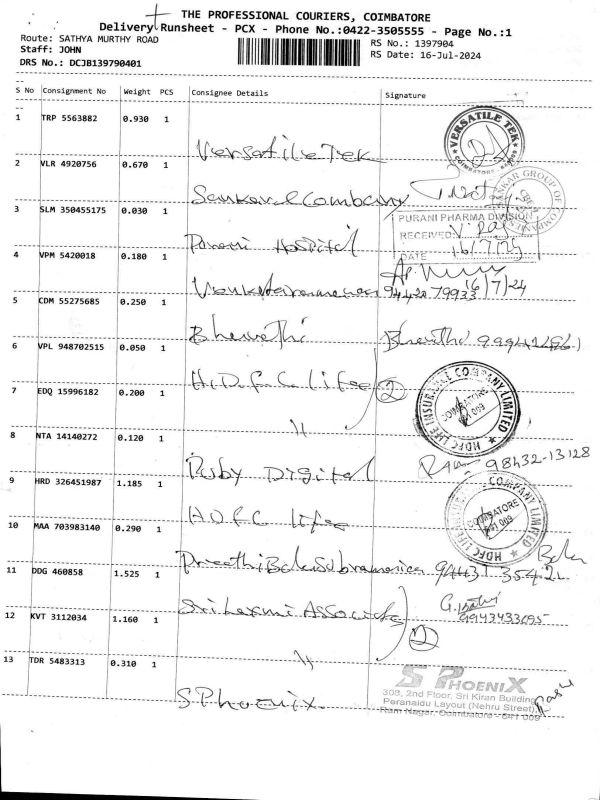 THE PROFESSIONAL COURIERS, COIMBATORE
Delivery Runsheet - PCX - Phone No.:0422-3505555 - Page No.:1
Route: SATHYA MURTHY ROAD
Staff: JOHN
DRS No.: DCJB139790401
RS No.: 1397904
RS Date: 16-Jul-2024
S No Consignment No Weight PCS Consignee Details Signature
1 TRP 5563882 0.930 1
Versatile Tek
VERSATILE TEK
COIMBATORE
2 VLR 4920756 0.670 1
3 SLM 350455175 0.030 1
PURANI PHARMA DIVISION
RECEIVED
DATE 16/7/24
Purani Hospital
4 VPM 5420018 0.180 1
16/7/24
5 CDM 55275685 0.250 1
Bharathi
6 VPL 948702515 0.050 1
H.D.F.C. Life 2
7 EDQ 15996182 0.200 1
"
HDFC LIFE INSURANCE COMPANY LIMITED
COIMBATORE
641 009
8 NTA 14140272 0.120 1
Ruby Digital
98432-13128
9 HRD 326451987 1.185 1
HDFC Life
COMPANY LIMITED
COIMBATORE
641 009
HDFC LIFE
10 MAA 703983140 0.290 1
Preethi Balasubramanian
94431 35422
11 DDG 460858 1.525 1
Sri Laxmi Associates 2
12 KVT 3112034 1.160 1
"
13 TDR 5483313 0.310 1
S Phoenix
S PHOENIX
308, 2nd Floor, Sri Kiran Building
Peranaidu Layout (Nehru Street),
Ram Nagar, Coimbatore - 641 009